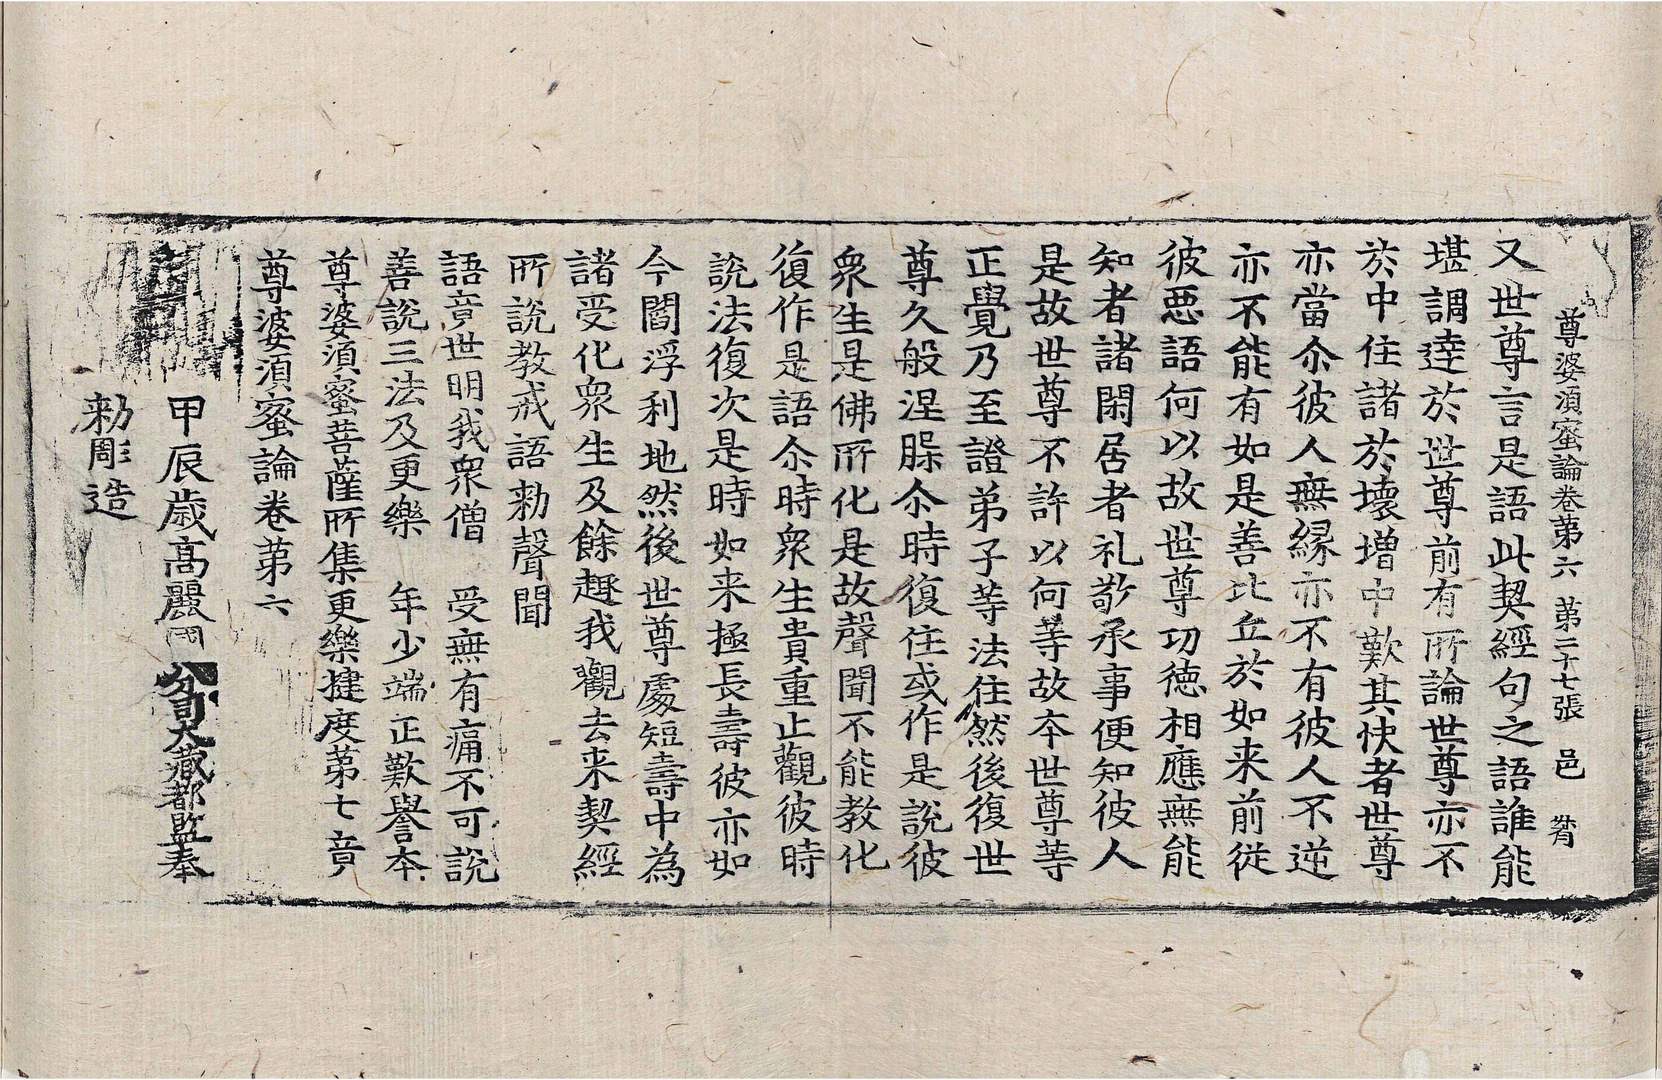 尊婆須蜜論卷第六　第二十七張　邑
又世尊言是語此契經句之語誰能
堪調達於世尊前有所論世尊亦不
於中住諸於壞增中歎其快者世尊
亦當尒彼人無緣亦不有彼人不逆
亦不能有如是善比丘於如来前從
彼惡語何以故世尊功德相應無能
知者諸閑居者礼敬承事便知彼人
是故世尊不許以何等故夲世尊等
正覺乃至證弟子等法住然後復世
尊久般涅槃尒時復住或作是說彼
衆生是佛所化是故聲聞不能教化
復作是語尒時衆生貴重止觀彼時
說法復次是時如来極長壽彼亦如
今閻浮利地然後世尊處短壽中為
諸受化衆生及餘趣我觀去来契經
所說教戒語勑聲聞
語竟世明我衆僧　受無有痛不可說
善說三法及更樂　年少端正歎譽夲
尊婆須蜜菩薩所集更樂揵度第七竟
尊婆須蜜論卷第六
甲辰歲高麗國分司大藏都監奉
勑彫造